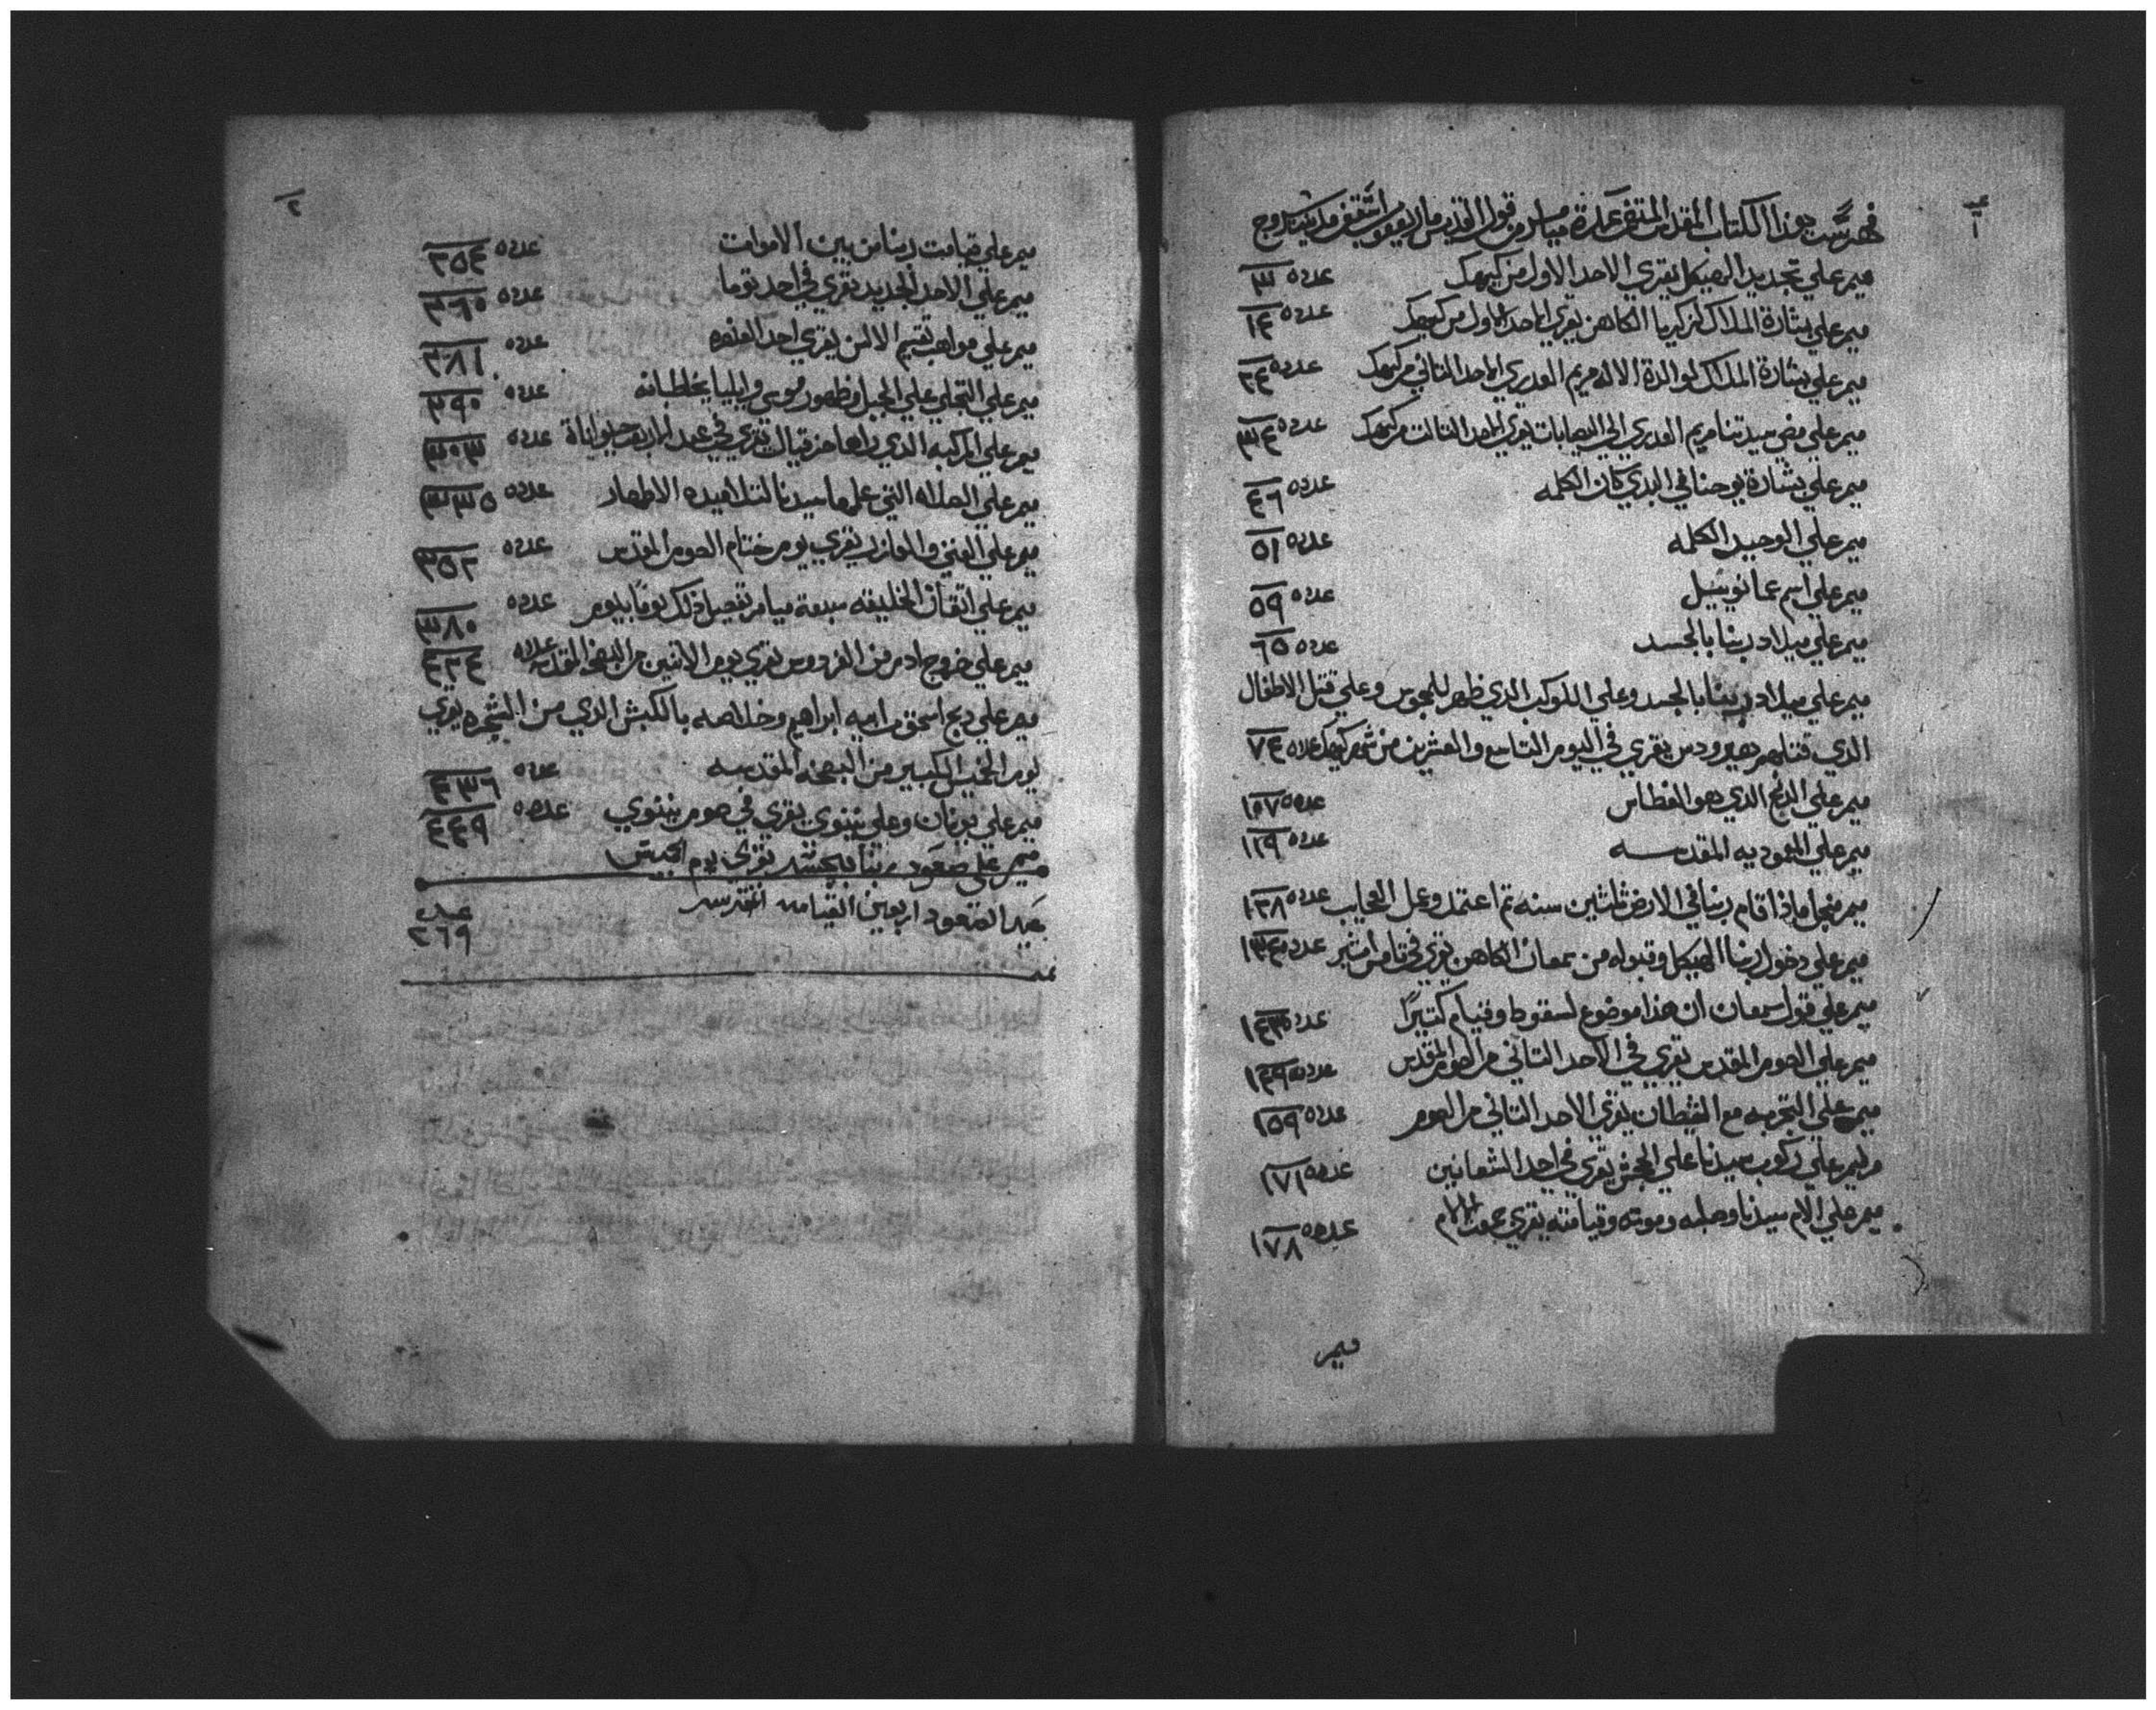 ١
فهرست هذا الكتاب المقدس المتضمن عدة ميامر من قول القديس مار يعقوب اسقف مدينة سروج
ميمر علي تجديد الهيكل يقري الاحد الاول من كيهك عدده ٣
ميمر علي بشارة الملاك لزكريا الكاهن يقري الاحد الاول من كيهك عدده ١٤
ميمر علي بشارة الملاك لوالدة الاله مريم العدري الاحد التاني من كيهك عدده ٢٤
ميمر علي مضي سيدتنا مريم العدري الي اليصابات يقري الاحد التالت من كيهك عدده ٣٤
ميمر علي بشارة يوحنا في البدي كان الكلمه عدده ٤٦
ميمر علي الوحيد الكلمه عدده ٥١
ميمر علي اسم عمانوييل عدده ٥٩
ميمر علي ميلاد ربنا بالجسد عدده ٦٥
ميمر علي ميلاد ربنا بالجسد وعلي الكوكب الدي ظهر للمجوس وعلي قتل الاطفال
الدي قتلهم هيرودس يقري في اليوم التاسع والعشرين من شهر كيهك عدده ٧٤
ميمر علي الدنح الدي هو الغطاس عدده ١٠٧
ميمر علي المعموديه المقدسه عدده ١١٩
ميمر من اجل ماذا اقام ربنا في الارض ثلثين سنه تم اعتمد وعمل العجايب عدده ١٢٨
ميمر علي دخول ربنا الهيكل وقبوله من سمعان الكاهن يقري في تامن امشير عدده ١٣٤
ميمر علي قول سمعان ان هذا موضوع لسقوط وقيام كتيرًا عدده ١٤٣
ميمر علي الصوم المقدس يقري في الاحد التاني من الصوم المقدس عدده ١٤٩
ميمر علي التجربه مع الشيطان يقري الاحد التاني من الصوم عدده ١٥٩
ميمر علي ركوب سيدنا علي الجحش يقري في احد الشعانين عدده ١٧١
ميمر علي الام سيدنا وصلبه وموته وقيامته يقري جمعة الالام عدده ١٧٨
ميمر
٢
ميمر علي قيامت ربنا من بين الاموات عدده ٢٥٤
ميمر علي الاحد الجديد يقري في احد توما عدده ٢٦٠
ميمر علي مواهب تقسيم الالسن يقري احد العنصره عدده ٢٨١
ميمر علي التجلي علي الجبل وظهور موسي وايليا يخاطبانه عدده ٢٩٠
ميمر علي المركبه الدي راها حزقيال يقري في عيد الاربعه حيوانات عدده ٣٠٣
ميمر علي الصلاه التي علمها سيدنا لتلاميده الاطهار عدده ٣٣٥
ميمر علي الغني والعازر يقري يوم ختام الصوم المقدس عدده ٣٥٢
ميمر علي اتقان الخليقه سبعة ميامر تفصيل ذلك يومًا بيوم عدده ٣٨٠
ميمر علي خروج ادم من الفردوس يقري يوم الاتنين من البصخه المقدسه عدده ٤٢٤
ميمر علي دبح اسحق من ابيه ابراهيم وخلاصه بالكبش الدي من الشجره يقري
يوم الخميس الكبير من البصخه المقدسه عدده ٤٣٦
ميمر علي يونان وعلي نينوي يقري في صوم نينوي عدده ٤٤٩
ميمر علي صعود ربنا بالجسد يقري يوم الخميس
عيد الصعود اربعين القيامه المقدسه عدده ٢٦٩